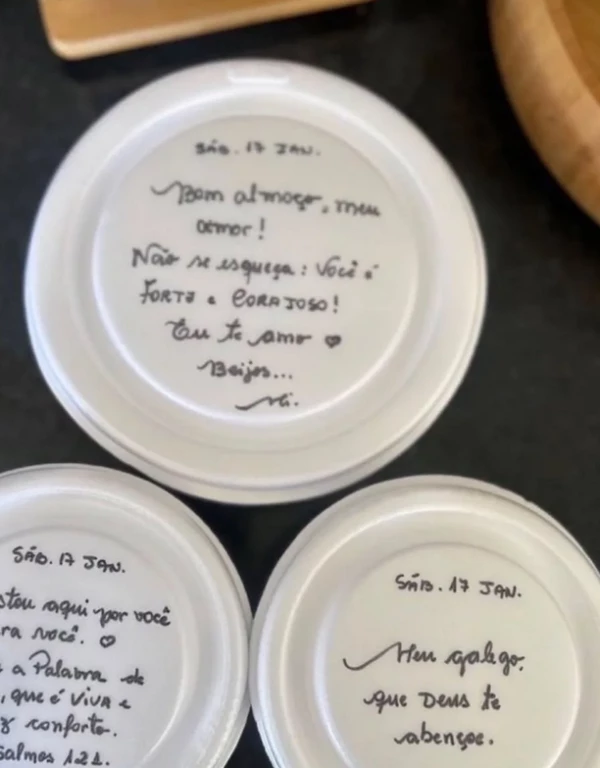 SÁB. 17 JAN.
Bom almoço, meu
amor!
Não se esqueça: Você é
FORTE e CORAJOSO!
Eu te amo ♡
Beijos...
SÁB. 17 JAN.
stou aqui por você
ra você. ♡
a Palavra de
, que é VIVA e
conforto.
salmos 121.
SÁB. 17 JAN.
Meu galego,
que Deus te
abençoe.